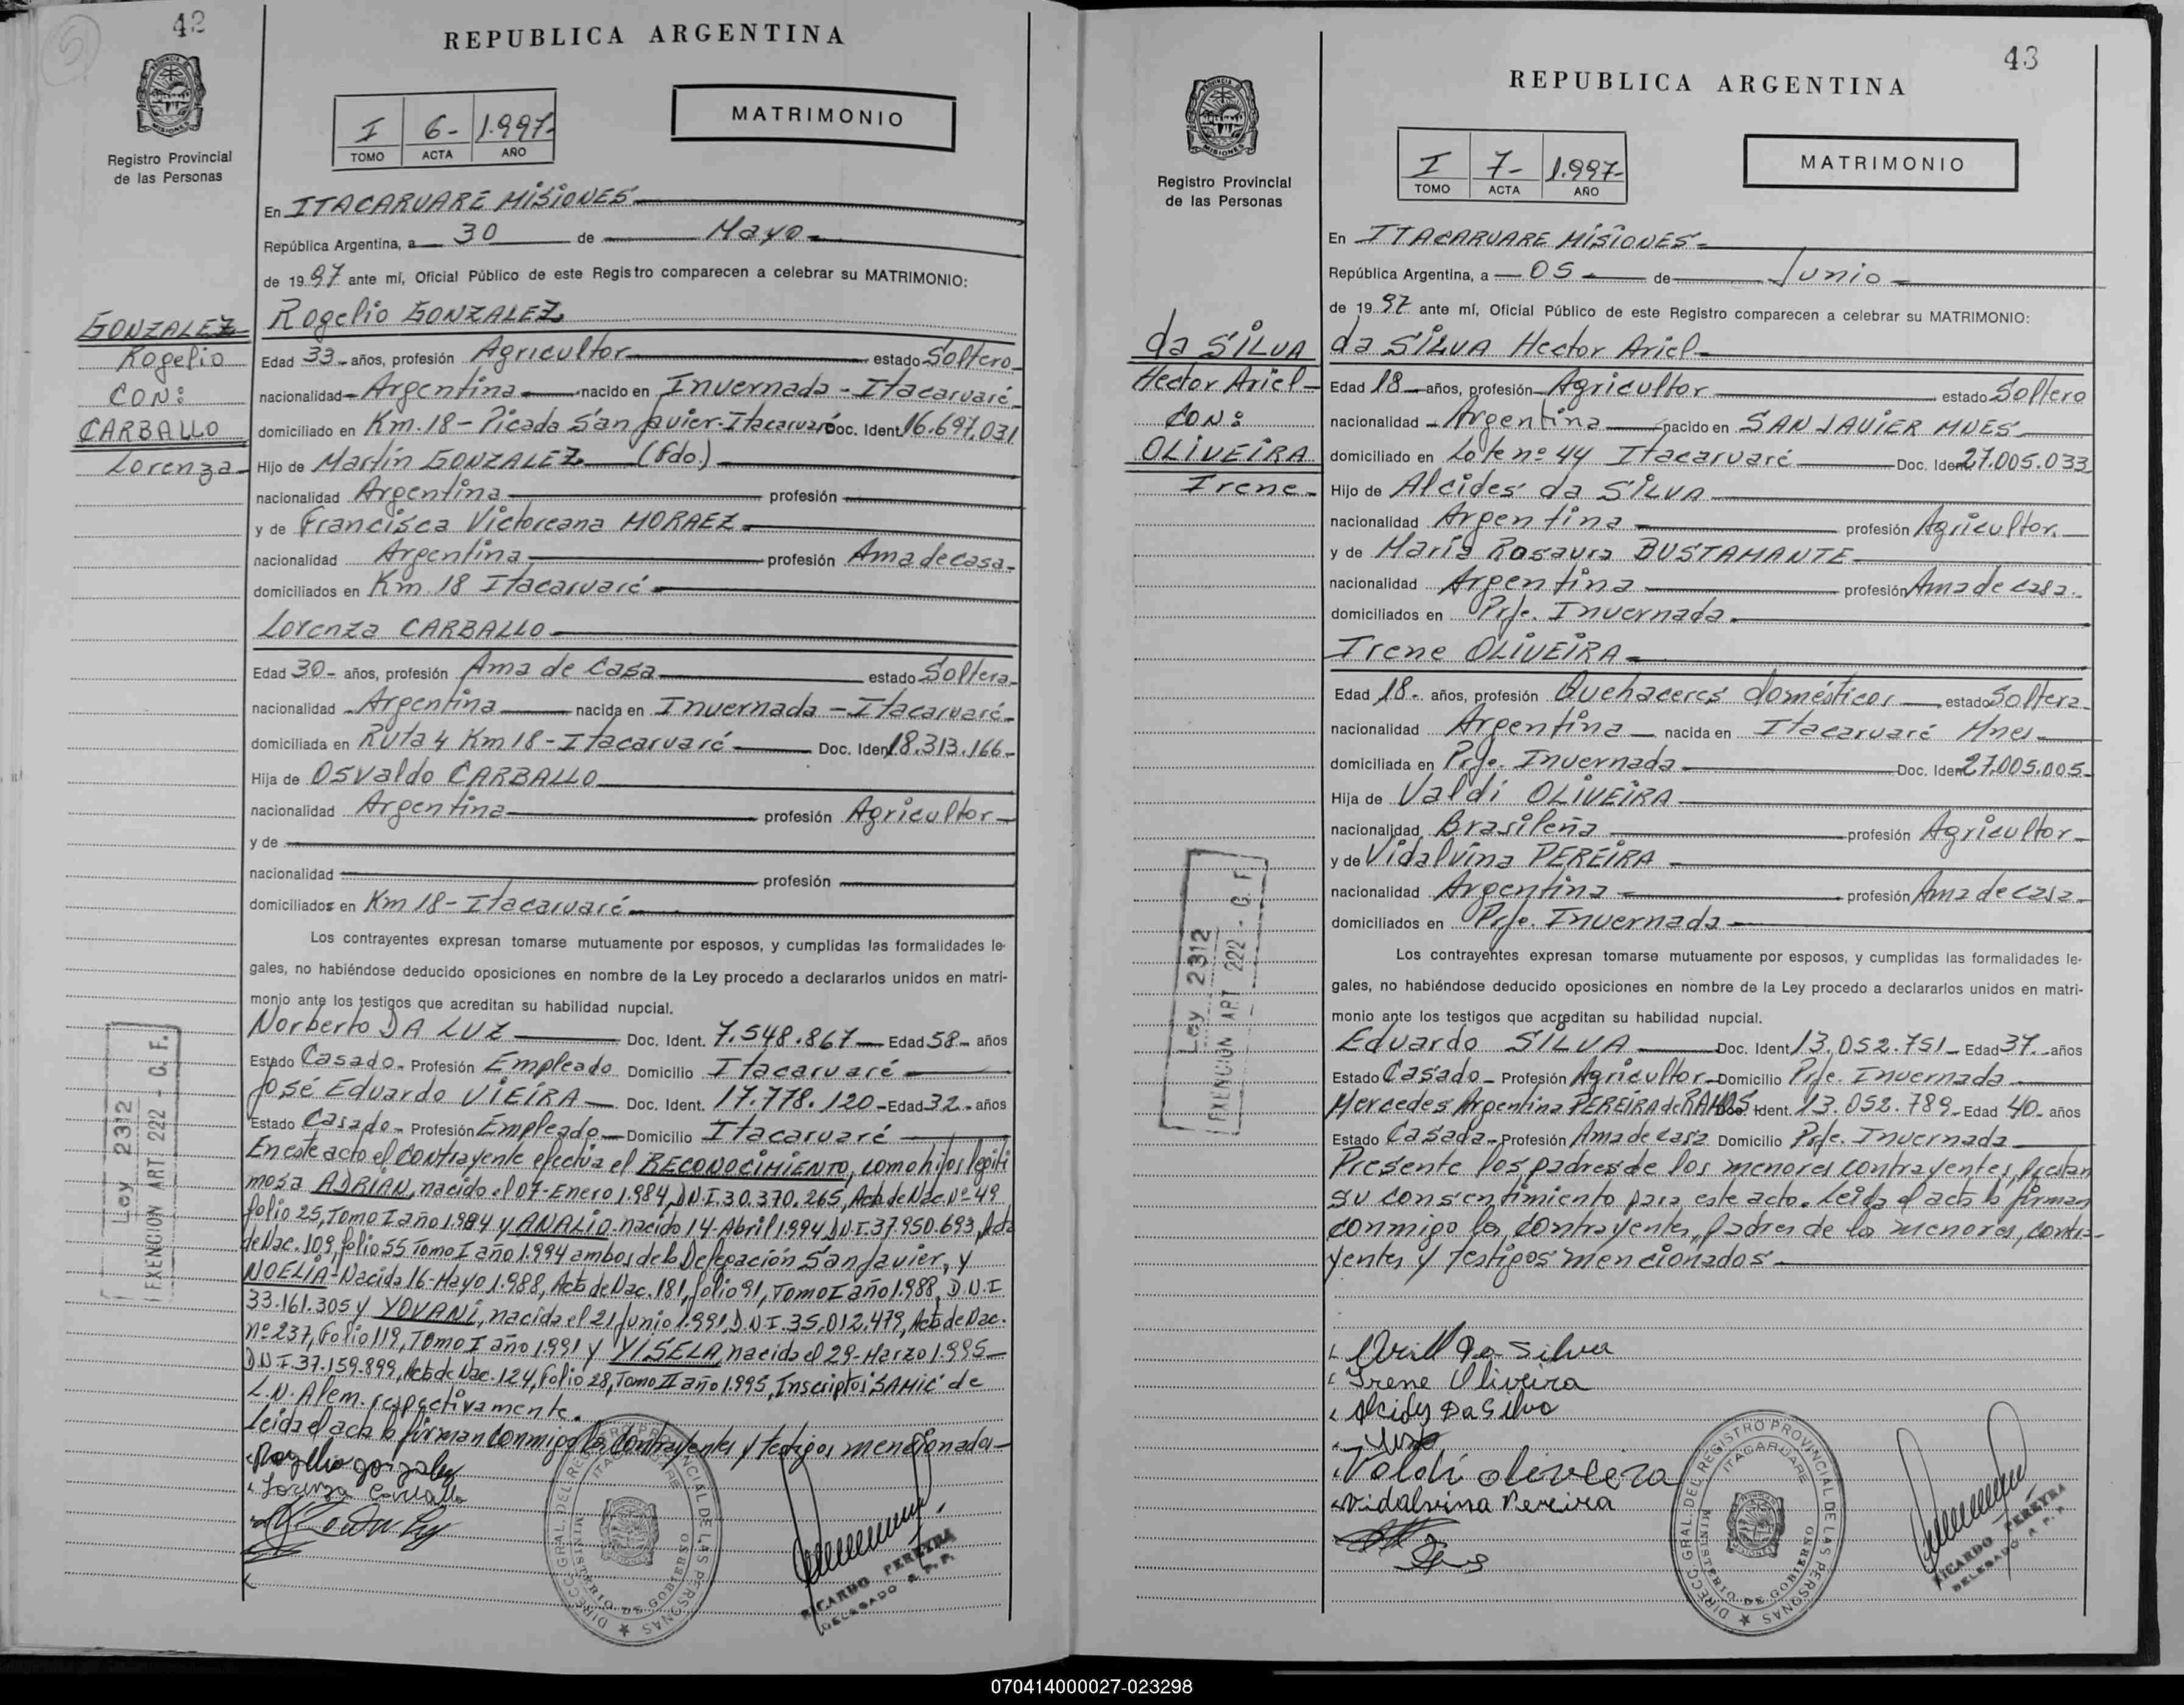 42
REPUBLICA ARGENTINA
PROVINCIA DE MISIONES
Registro Provincial
de las Personas
I 6- 1.997-
TOMO ACTA AÑO
MATRIMONIO
En ITACARUARE MISIONES
República Argentina, a 30 de Mayo
de 1997 ante mí, Oficial Público de este Registro comparecen a celebrar su MATRIMONIO:
GONZALEZ
Rogelio
CON:
CARBALLO
Lorenza
Rogelio GONZALEZ
Edad 33- años, profesión Agricultor estado Soltero
nacionalidad Argentina nacido en Invernada - Itacaruaré
domiciliado en Km. 18 - Picada San Javier-Itacaruaré Doc. Ident. 16.697.031
Hijo de Martín GONZALEZ (Fdo.)
nacionalidad Argentina profesión
y de Francisca Victoreana MORAEZ
nacionalidad Argentina profesión Ama de casa-
domiciliados en Km. 18 Itacaruaré
Lorenza CARBALLO
Edad 30- años, profesión Ama de Casa estado Soltera
nacionalidad Argentina nacida en Invernada - Itacaruaré
domiciliada en Ruta 4 Km 18 - Itacaruaré Doc. Iden 18.313.166-
Hija de Osvaldo CARBALLO
nacionalidad Argentina profesión Agricultor
y de
nacionalidad profesión
domiciliados en Km 18 - Itacaruaré
Los contrayentes expresan tomarse mutuamente por esposos, y cumplidas las formalidades le-
gales, no habiéndose deducido oposiciones en nombre de la Ley procedo a declararlos unidos en matri-
monio ante los testigos que acreditan su habilidad nupcial.
Norberto DA LUZ Doc. Ident. 7.548.867 Edad 58- años
Estado Casado- Profesión Empleado Domicilio Itacaruaré
José Eduardo VIEIRA Doc. Ident. 17.778.120- Edad 32- años
Estado Casado- Profesión Empleado Domicilio Itacaruaré
En este acto el contrayente efectúa el RECONOCIMIENTO, como hijos legíti
mos a ADRIAN, nacido el 07-Enero 1.984, D.N.I. 30.370.265, Acta de Nac. Nº 49
folio 25, Tomo I año 1.984 y ANALIO nacido 14-Abril 1994 D.N.I. 37.950.693, Acta
de Nac. 109, folio 55 Tomo I año 1.994 ambos de la Delegación San Javier, y
NOELIA - Nacida 16-Mayo 1.988, Acta de Nac. 181, folio 91, Tomo I año 1.988, D.N.I
33.161.305 y YOVANI, nacida el 21 Junio 1.991, D.N.I. 35.012.479, Acta de Nac.
nº 237, Folio 119, Tomo I año 1.991 y YISELA nacida el 29-Marzo 1.995
D.N.I. 37.159.899, Acta de Nac. 124, Folio 28, Tomo II año 1.995, Inscriptos SAMIC de
L.N. Alem. respectivamente.
Leida el acta lo firman conmigo los contrayentes y testigos mencionados
Rogelio gonzalez
Lorenza Carballo
Ley 2312
EXENCION ART 222 - C. F.
DIRECC. GRAL. DEL REGISTRO PROVINCIAL DE LAS PERSONAS
ITACARUARE
MINISTERIO DE GOBIERNO
RICARDO PEREYRA
DELEGADO A. P. P.
43
REPUBLICA ARGENTINA
PROVINCIA DE MISIONES
Registro Provincial
de las Personas
I 7- 1.997-
TOMO ACTA AÑO
MATRIMONIO
En ITACARUARE MISIONES
República Argentina, a 05 de Junio
de 1997 ante mí, Oficial Público de este Registro comparecen a celebrar su MATRIMONIO:
da SILVA
Hector Ariel
CON:
OLIVEIRA
Irene
da SILVA Hector Ariel
Edad 18 años, profesión Agricultor estado Soltero
nacionalidad Argentina nacido en SAN JAVIER MNES
domiciliado en Lote nº 44 Itacaruaré Doc. Iden 27.005.033
Hijo de Alcides da SILVA
nacionalidad Argentina profesión Agricultor
y de María Rosaura BUSTAMANTE
nacionalidad Argentina profesión Ama de casa.
domiciliados en Prje. Invernada
Irene OLIVEIRA
Edad 18- años, profesión Quehaceres domésticos estado Soltera
nacionalidad Argentina nacida en Itacaruaré Mnes
domiciliada en Prje. Invernada Doc. Iden 27.005.005
Hija de Valdi OLIVEIRA
nacionalidad Brasileña profesión Agricultor
y de Vidalvina PEREIRA
nacionalidad Argentina profesión Ama de casa
domiciliados en Prje. Invernada
Los contrayentes expresan tomarse mutuamente por esposos, y cumplidas las formalidades le-
gales, no habiéndose deducido oposiciones en nombre de la Ley procedo a declararlos unidos en matri-
monio ante los testigos que acreditan su habilidad nupcial.
Eduardo SILVA Doc. Ident 13.052.751- Edad 37- años
Estado Casado- Profesión Agricultor Domicilio Prje. Invernada
Mercedes Argentina PEREIRA de RAMOS Doc. Ident. 13.052.789- Edad 40- años
Estado Casada- Profesión Ama de casa Domicilio Prje. Invernada
Presente los padres de los menores contrayentes, prestan
su consentimiento para este acto. Leida el acta lo firman
conmigo los contrayentes, padres de los menores, contra-
yentes y testigos mencionados
Da Silva
Irene Oliveira
Alcides Da Silva
Valdi oliveira
Vidalvina Pereira
Ley 2312
EXENCION ART 222 - C. F.
DIRECC. GRAL. DEL REGISTRO PROVINCIAL DE LAS PERSONAS
ITACARUARE
MINISTERIO DE GOBIERNO
RICARDO PEREYRA
DELEGADO A. P. P.
070414000027-023298